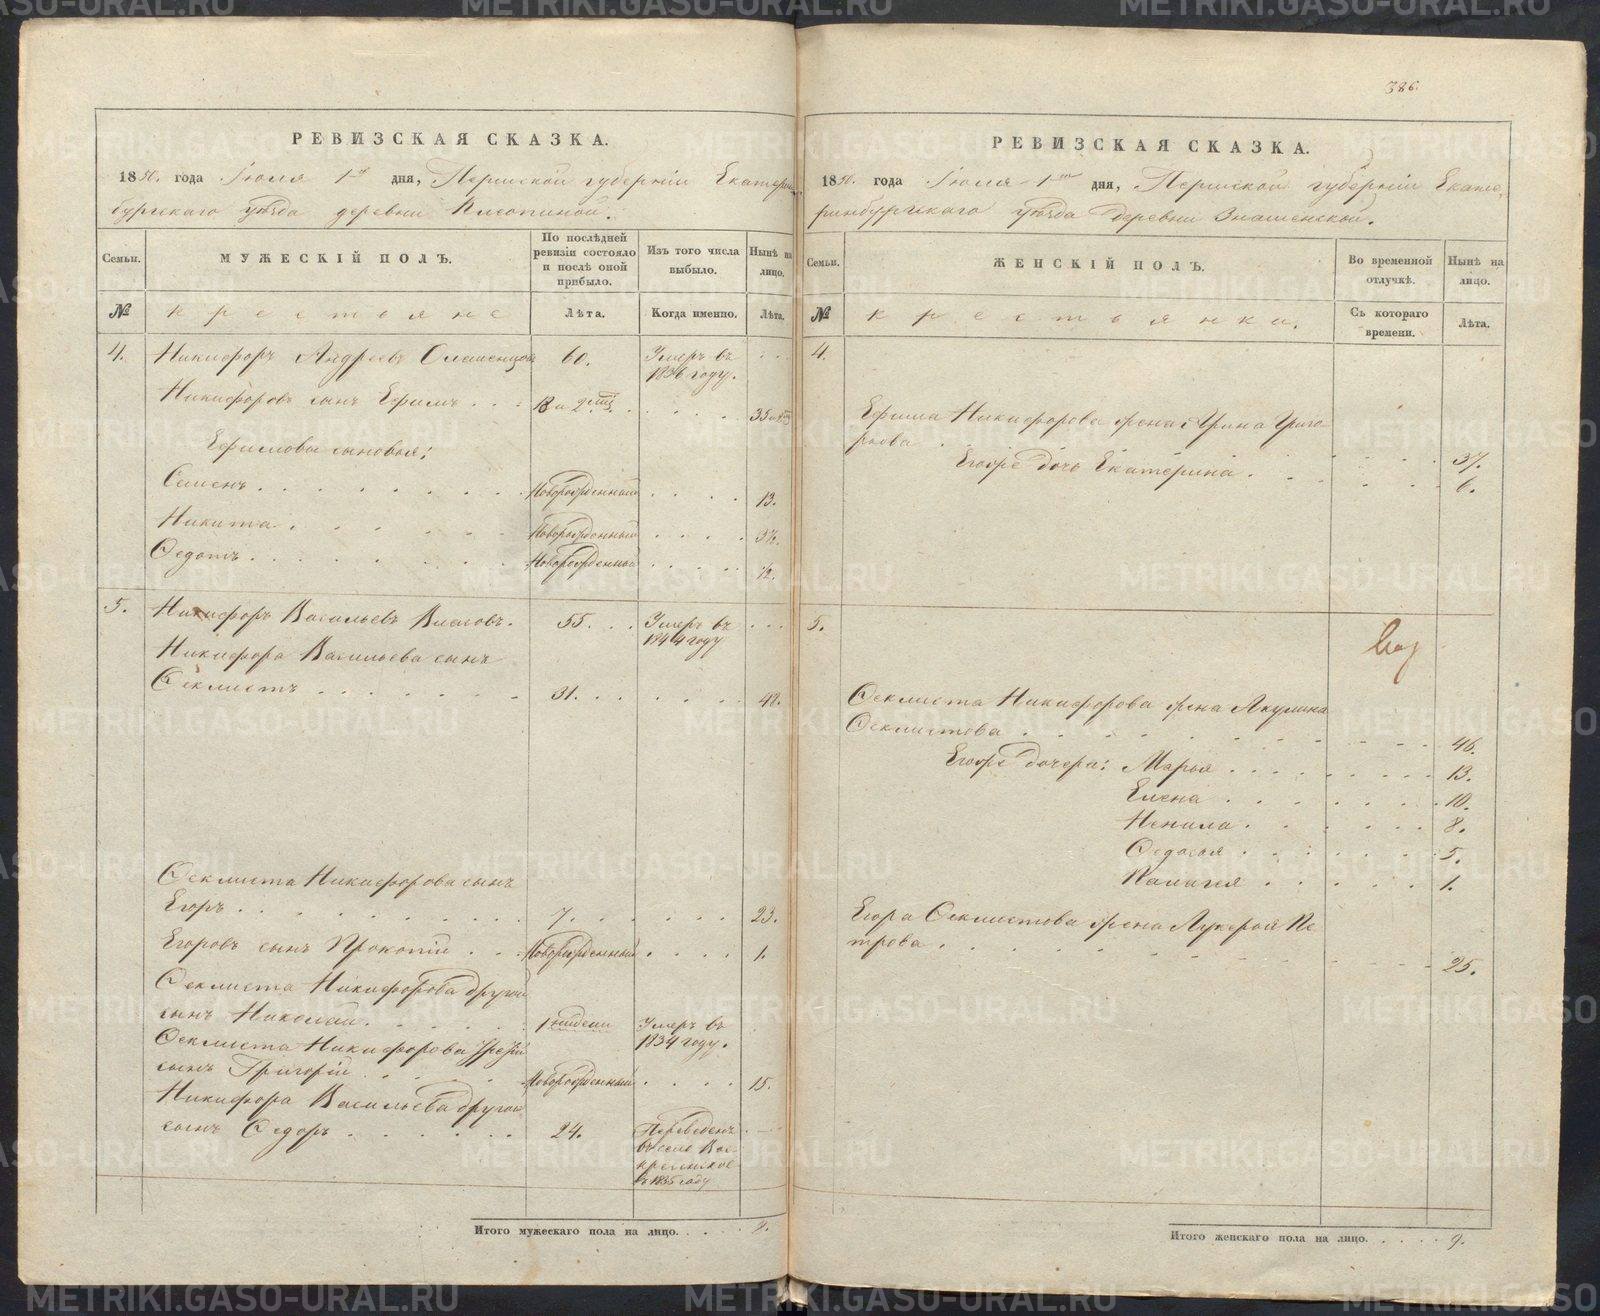 386.
РЕВИЗСКАЯ СКАЗКА.
1850. года Іюля 1го дня, Пермской губерніи Екатерин-
бургскаго уѣзда деревни
Семьи.
МУЖЕСКІЙ ПОЛЪ.
По послѣдней ревизіи состояло и послѣ оной прибыло.
Изъ того числа выбыло.
Нынѣ на лицо.
№
крестьяне
Лѣта.
Когда именно.
Лѣта.
4. Никифоръ Андреевъ 60. Умеръ въ 1836 году. . . .
Никифоровъ сынъ Ефимъ . . . 18 и 2 . . . . .
Ефимовы сыновья:
Семенъ . . . . . . . . Новорожденный . . . . 13.
Никита . . . . . . Новорожденный . . . .
Федотъ . . . . . . . . Новорожденный . . . . . ½.
5. Никифоръ Васильевъ Власовъ. 55. . . Умеръ въ 1844 году . . .
Никифора Васильева сынъ
Феклистъ . . . . . . . 31. . . . . . 48.
Феклиста Никифорова сынъ
Егоръ . . . . . . . . . 7. . . . . . 23.
Егоровъ сынъ Прокопій . . . Новорожденный . . . . 1.
Феклиста Никифорова другой
сынъ Николай . . . . . 1 недели Умеръ въ 1834 году. .
Феклиста Никифорова третій
сынъ Григорій . . . . . Новорожденный . . . . 15.
Никифора Васильева другой
сынъ Федоръ . . . . . . 24. Переведенъ въ село Вос-
кресенское
въ 1835 году
Итого мужескаго пола на лицо. . . . .
РЕВИЗСКАЯ СКАЗКА.
1850. года Іюля 1го дня, Пермской губерніи Екате-
ринбургскаго уѣзда деревни Знаменской.
Семьи.
ЖЕНСКІЙ ПОЛЪ.
Во временной отлучкѣ.
Нынѣ на лицо.
№
крестьянки.
Съ котораго времени.
Лѣта.
4.
Ефима Никифорова жена Ирина Григо-
рьева . . . . . . . . . 37.
Егоже дочь Екатерина . . . . . 6.
5.
Феклиста Никифорова жена Акулина
Феклистова . . . . . . . . . 46.
Егоже дочери: Марья . . . . . . . 13.
Елена . . . . . . . 10.
Ненила . . . . . . 8.
Федосья . . . . . . 5.
Палагея . . . . . . 1.
Егора Феклистова жена Лукерья Пе-
трова . . . . . . . . . . 25.
Итого женскаго пола на лицо. . . . . 9.
METRIKI.GASO-URAL.RU